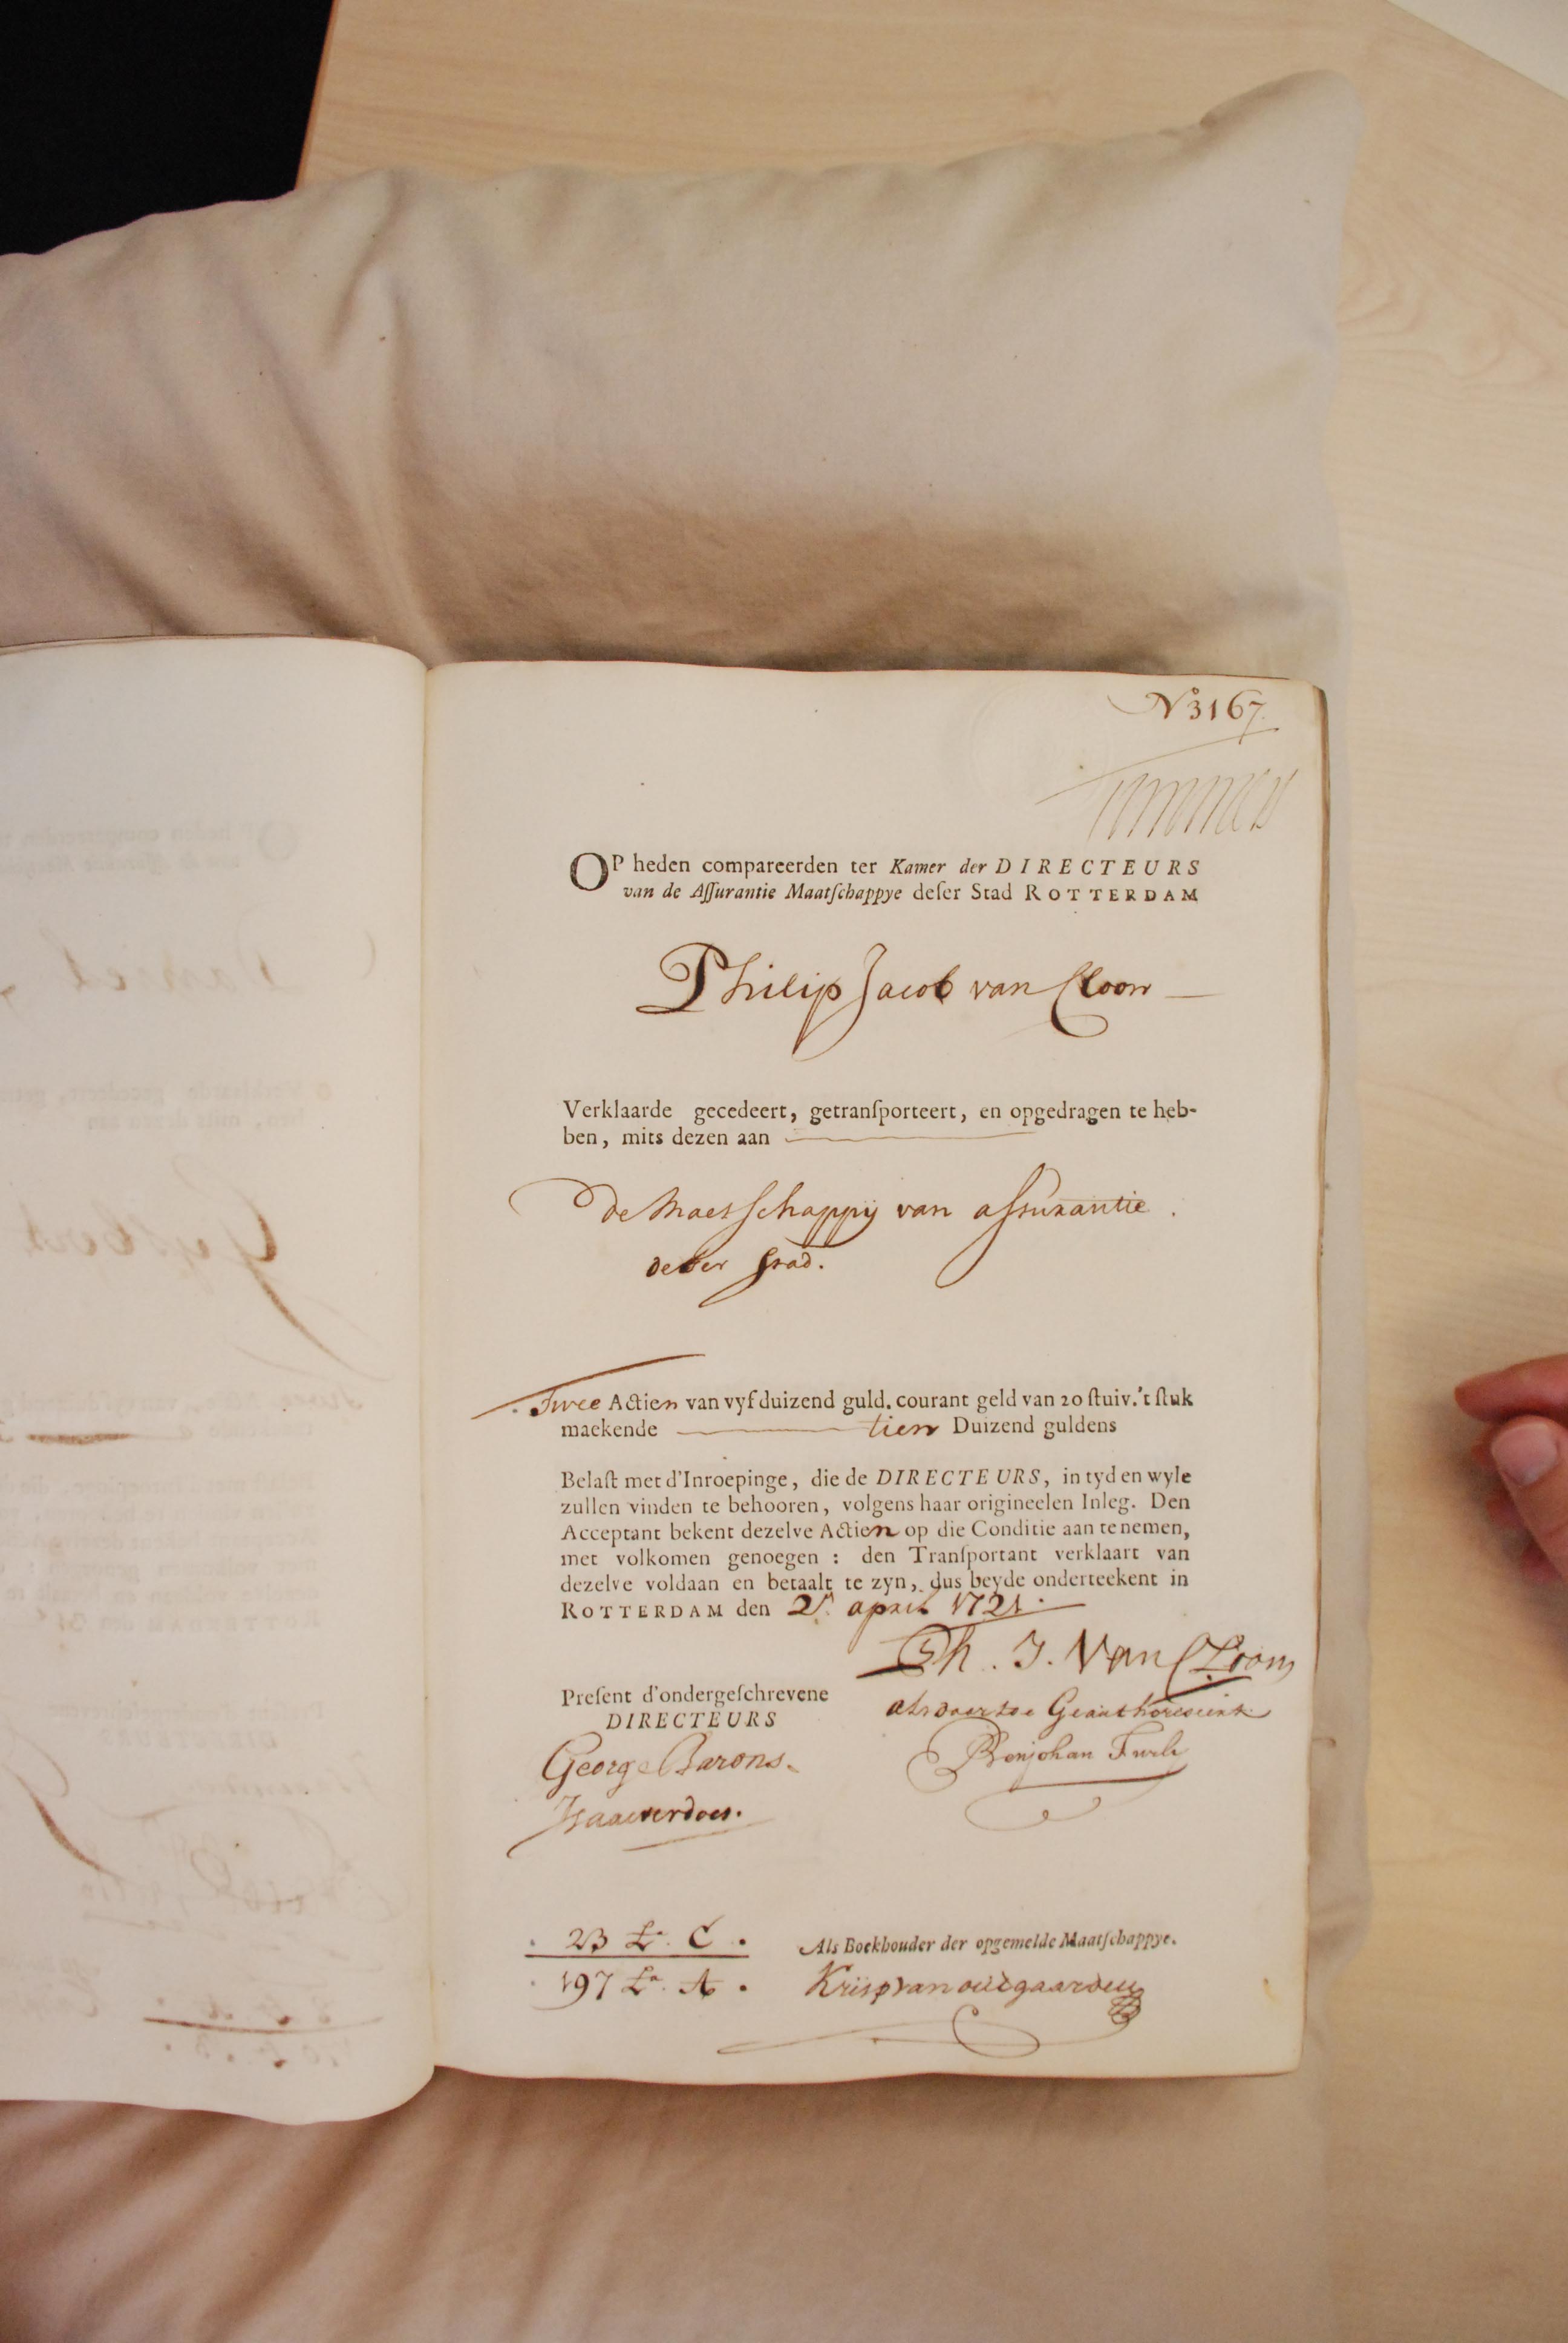 No 3167
OP heden compareerden ter Kamer der DIRECTEURS
van de Aſſurantie Maatſchappye deſer Stad ROTTERDAM
Philip Jacob van Cloon
Verklaarde gecedeert, getranſporteert, en opgedragen te heb-
ben, mits dezen aan
de Maetschappij van assurantie
deser stad.
Twee Actien van vyf duizend guld. courant geld van 20 ſtuiv. 't ſtuk
maekende tien Duizend guldens
Belaſt met d'Inroepinge, die de DIRECTEURS, in tyd en wyle
zullen vinden te behooren, volgens haar origineelen Inleg. Den
Acceptant bekent dezelve Actien op die Conditie aan te nemen,
met volkomen genoegen : den Tranſportant verklaart van
dezelve voldaan en betaalt te zyn, dus beyde onderteekent in
ROTTERDAM den 2n april 1721.
Ph. J. Van Cloon
Preſent d'ondergeſchrevene
DIRECTEURS
George Barons.
Isaac verdoes.
23 La. C.
197 La. A.
Als Boekhouder der opgemelde Maatſchappye.
Krisp van outgaarden